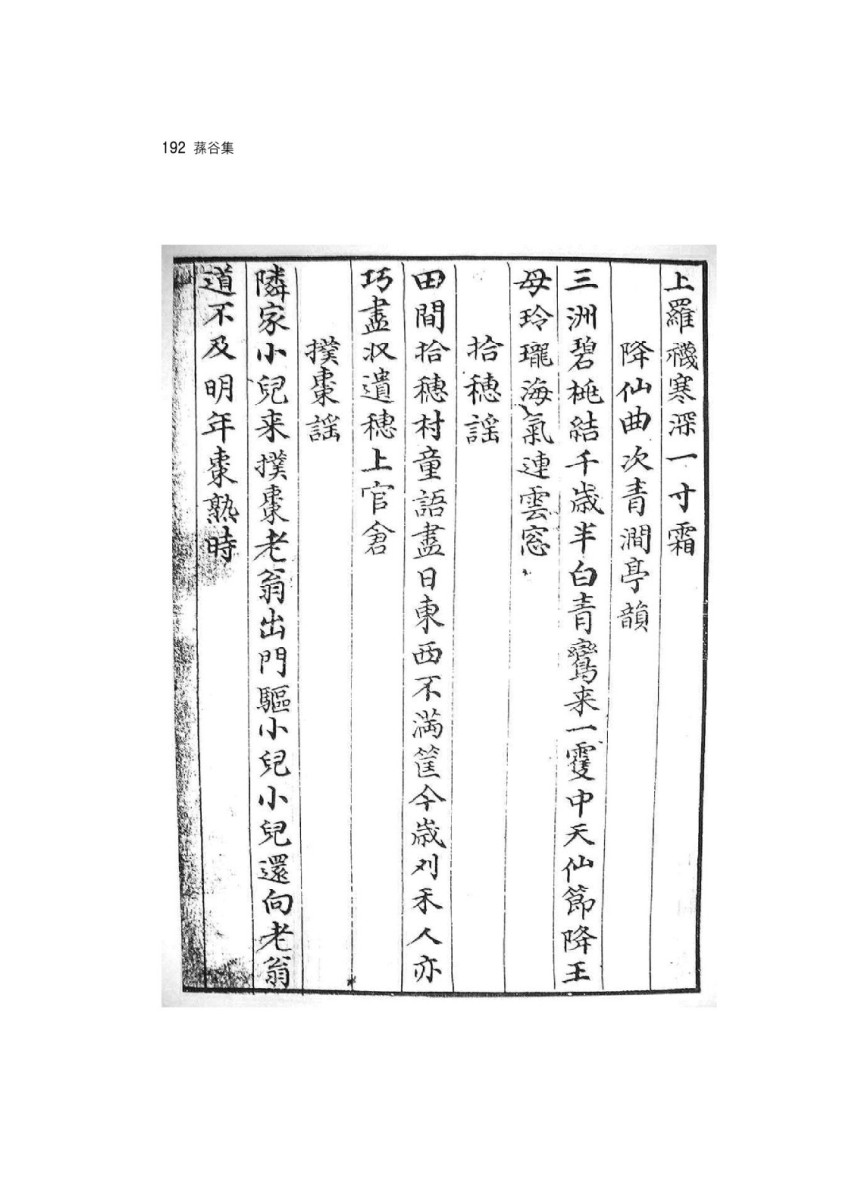 192 蓀谷集
上羅襪寒深一寸霜
降仙曲次青澗亭韻
三洲碧桃結千歳半白青鸞来一䨇中天仙節降王
母玲瓏海氣連雲窓
拾穗謠
田間拾穗村童語盡日東西不満筐今歳刈禾人亦
巧盡收遺穗上官倉
撲棗謡
隣家小兒来撲棗老翁出門驅小兒小兒還向老翁
道不及明年棗熟時